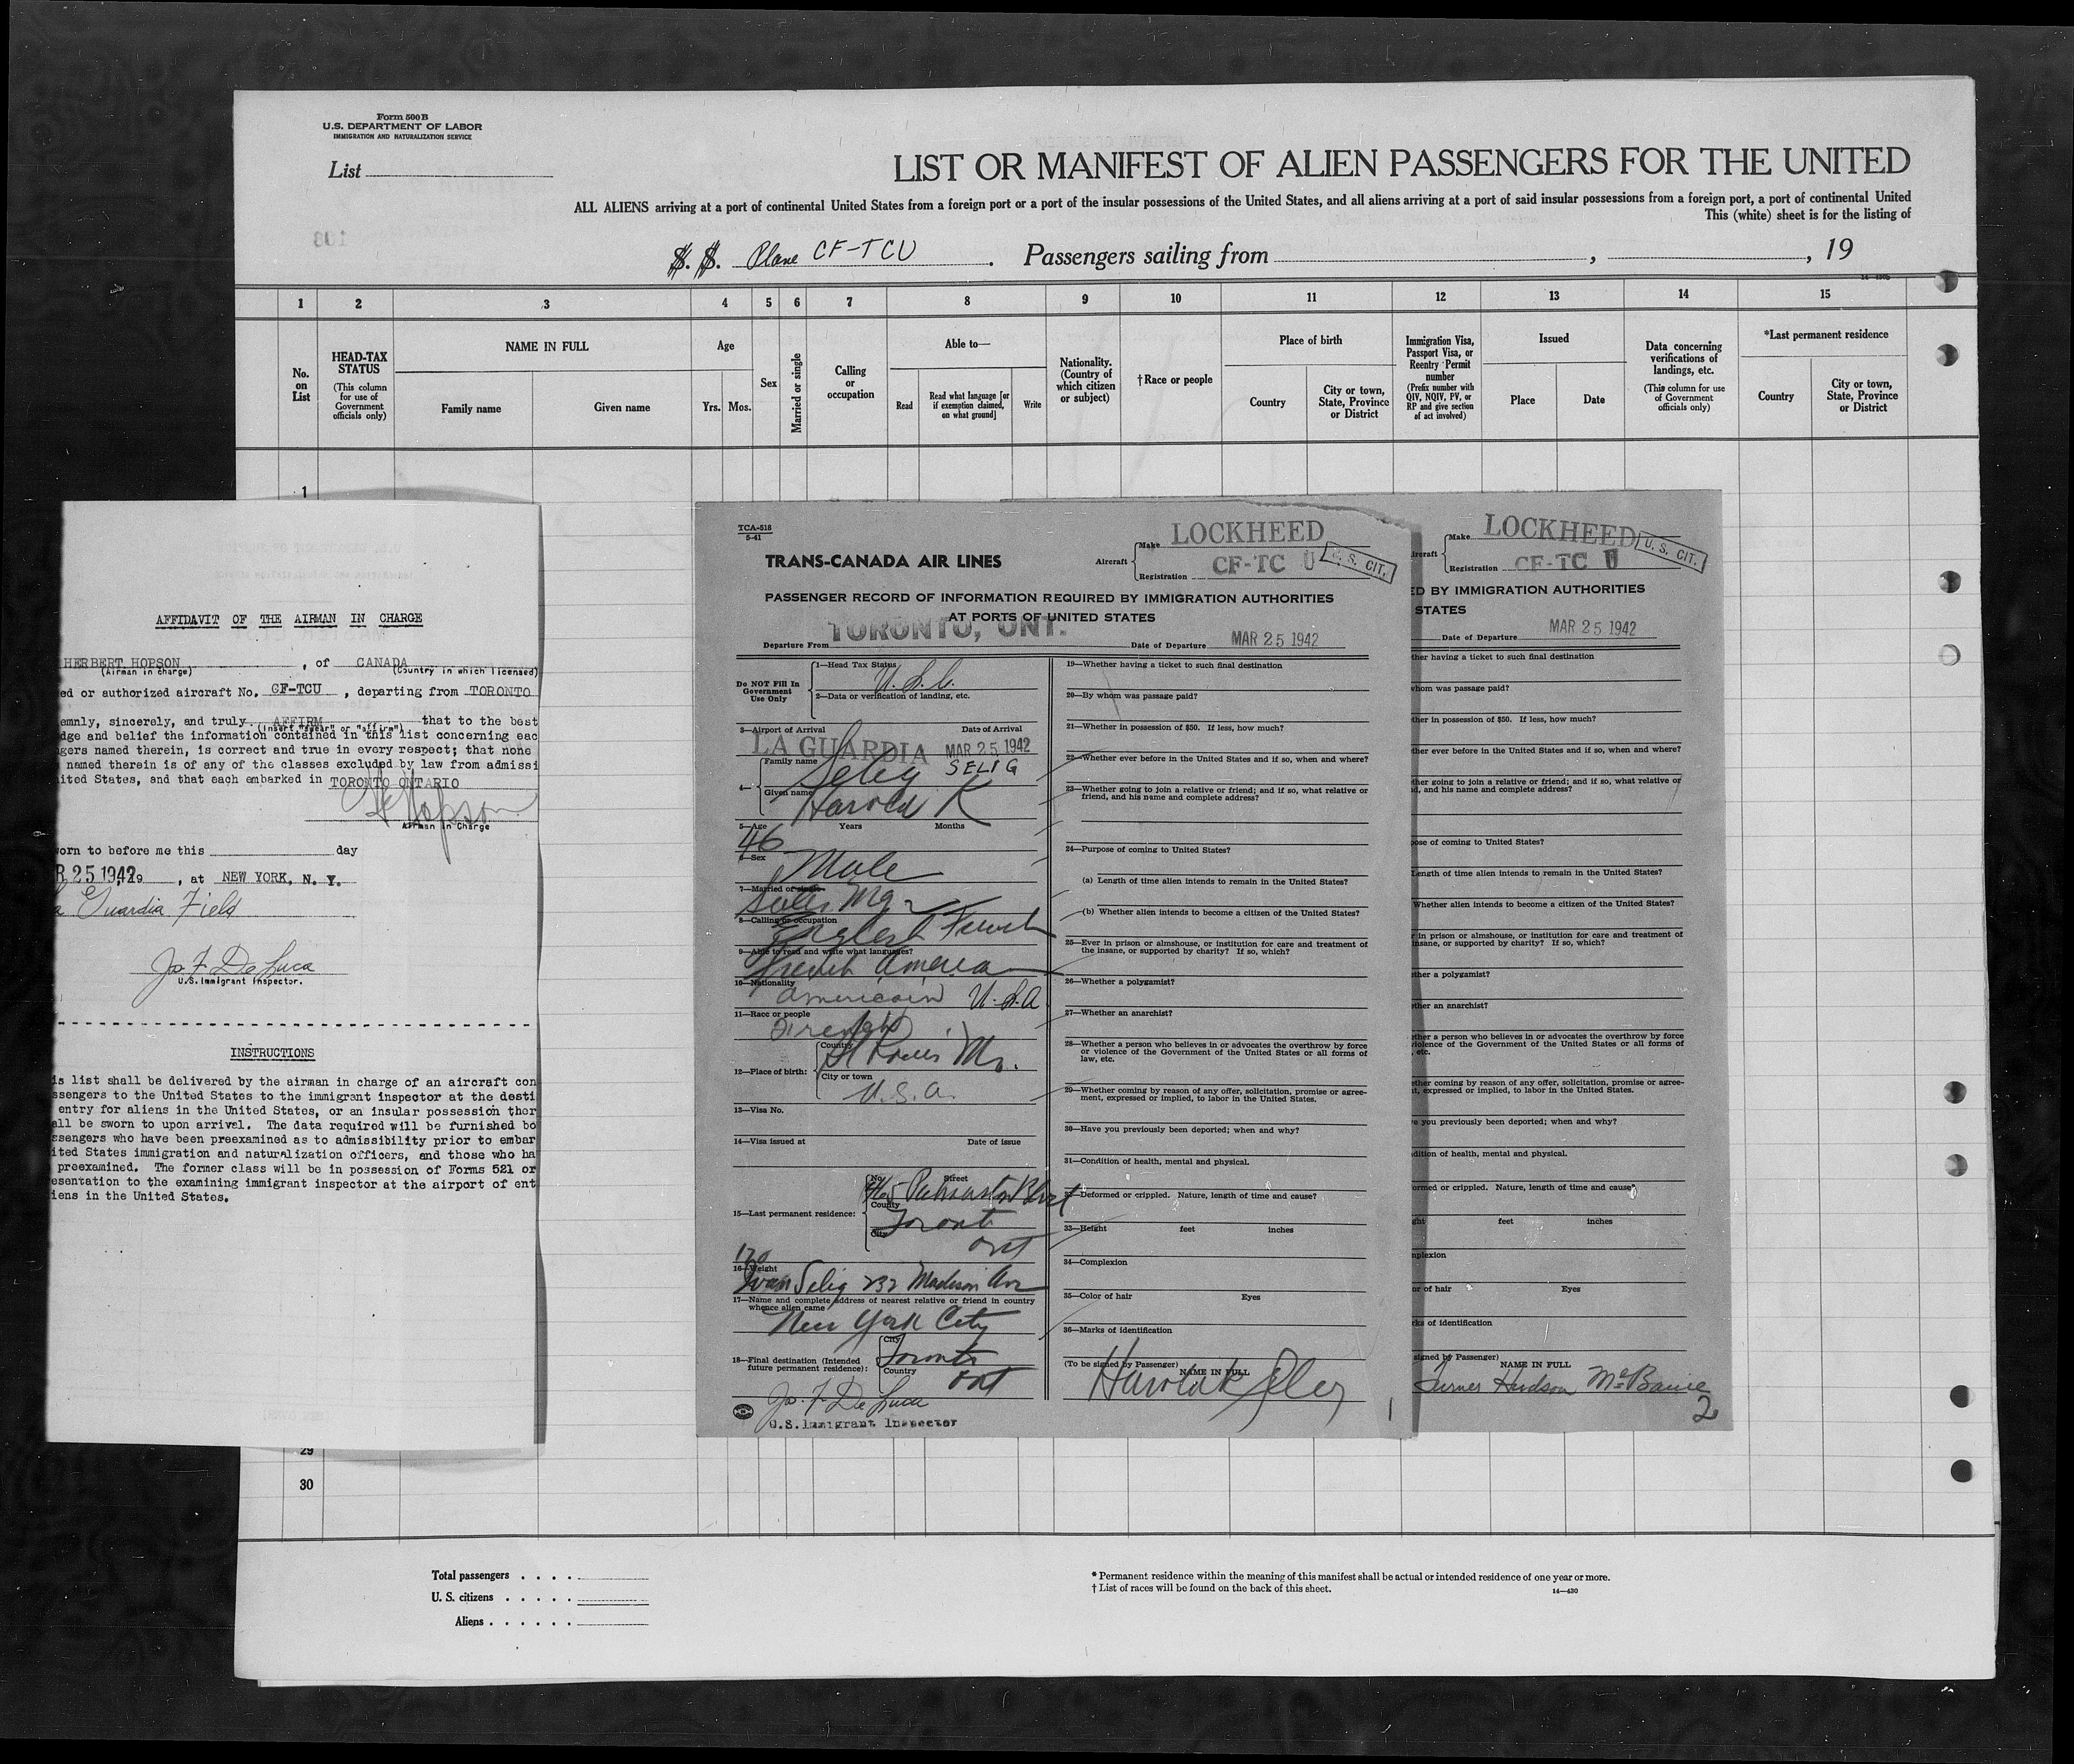 Form 500B
U.S. DEPARTMENT OF LABOR
IMMIGRATION AND NATURALIZATION SERVICE
List
LIST OR MANIFEST OF ALIEN PASSENGERS FOR THE UNITED
ALL ALIENS arriving at a port of continental United States from a foreign port or a port of the insular possessions of the United States, and all aliens arriving at a port of said insular possessions from a foreign port, a port of continental United
This (white) sheet is for the listing of
S. S. Plane CF-TCU . Passengers sailing from , , 19
1 2 3 4 5 6 7 8 9 10 11 12 13 14 15
No. on List
HEAD-TAX STATUS
(This column for use of Government officials only)
NAME IN FULL
Family name Given name
Age
Yrs. Mos.
Sex
Married or single
Calling or occupation
Able to—
Read
Read what language [or if exemption claimed, on what ground]
Write
Nationality. (Country of which citizen or subject)
†Race or people
Place of birth
Country
City or town, State, Province or District
Immigration Visa, Passport Visa, or Reentry Permit number
(Prefix number with QIV, NQIV, PV, or RP and give section of act involved)
Issued
Place Date
Data concerning verifications of landings, etc.
(This column for use of Government officials only)
*Last permanent residence
Country
City or town, State, Province or District
1
AFFIDAVIT OF THE AIRMAN IN CHARGE
HERBERT HOPSON , of CANADA
(Airman in charge) (Country in which licensed)
ed or authorized aircraft No. CF-TCU , departing from TORONTO
emnly, sincerely, and truly AFFIRM that to the best
(Insert "swear" or "affirm")
dge and belief the information contained in this list concerning eac
gers named therein, is correct and true in every respect; that none
named therein is of any of the classes excluded by law from admissi
ited States, and that each embarked in TORONTO ONTARIO
H Hopson
Airman in Charge
orn to before me this day
R 25 1942 , at NEW YORK, N. Y.
a Guardia Field
Jo. F. De Luca
U.S. Immigrant Inspector.
INSTRUCTIONS
is list shall be delivered by the airman in charge of an aircraft con
ssengers to the United States to the immigrant inspector at the desti
entry for aliens in the United States, or an insular possession ther
all be sworn to upon arrival. The data required will be furnished bo
ssengers who have been preexamined as to admissibility prior to embar
ited States immigration and naturalization officers, and those who ha
preexamined. The former class will be in possession of Forms 521 or
esentation to the examining immigrant inspector at the airport of ent
iens in the United States.
TCA-518
5-41
TRANS-CANADA AIR LINES
Aircraft
Make LOCKHEED
Registration CF-TC U
U. S. CIT.
PASSENGER RECORD OF INFORMATION REQUIRED BY IMMIGRATION AUTHORITIES
AT PORTS OF UNITED STATES
Departure From TORONTO, ONT. Date of Departure MAR 25 1942
Do NOT Fill In Government Use Only
1—Head Tax Status
U.S.C.
2—Data or verification of landing, etc.
3—Airport of Arrival Date of Arrival
LA GUARDIA MAR 25 1942
4— Family name Selig SELIG
Given name Harold K
5—Age Years Months
46
6—Sex
Male
7—Married or single
Sales Mgr
8—Calling or occupation
English French
9—Able to read and write what languages?
French America
10—Nationality
American U.S.A
11—Race or people
French
12—Place of birth: Country St Louis Mo.
City or town
U.S.A.
13—Visa No.
14—Visa issued at Date of issue
15—Last permanent residence:
No. Street
County
Toronto
City
Ont
170
16—Weight
Selig 232 Madison Ave
17—Name and complete address of nearest relative or friend in country
whence alien came
New York City
18—Final destination (Intended future permanent residence):
City Toronto
Country Ont
Jo. F. De Luca
U.S. Immigrant Inspector
19—Whether having a ticket to such final destination
20—By whom was passage paid?
21—Whether in possession of $50. If less, how much?
22—Whether ever before in the United States and if so, when and where?
23—Whether going to join a relative or friend; and if so, what relative or
friend, and his name and complete address?
24—Purpose of coming to United States?
(a) Length of time alien intends to remain in the United States?
(b) Whether alien intends to become a citizen of the United States?
25—Ever in prison or almshouse, or institution for care and treatment of
the insane, or supported by charity? If so, which?
26—Whether a polygamist?
27—Whether an anarchist?
28—Whether a person who believes in or advocates the overthrow by force
or violence of the Government of the United States or all forms of
law, etc.
29—Whether coming by reason of any offer, solicitation, promise or agree-
ment, expressed or implied, to labor in the United States.
30—Have you previously been deported; when and why?
31—Condition of health, mental and physical.
32—Deformed or crippled. Nature, length of time and cause?
33—Height feet inches
34—Complexion
35—Color of hair Eyes
36—Marks of identification
(To be signed by Passenger)
NAME IN FULL
Harold K Selig
1
ircraft
Make LOCKHEED
Registration CF-TC U
U. S. CIT.
ED BY IMMIGRATION AUTHORITIES
STATES
Date of Departure MAR 25 1942
ther having a ticket to such final destination
whom was passage paid?
ther in possession of $50. If less, how much?
ther ever before in the United States and if so, when and where?
ther going to join a relative or friend; and if so, what relative or
d, and his name and complete address?
ose of coming to United States?
Length of time alien intends to remain in the United States?
Whether alien intends to become a citizen of the United States?
r in prison or almshouse, or institution for care and treatment of
insane, or supported by charity? If so, which?
ther a polygamist?
ther an anarchist?
ther a person who believes in or advocates the overthrow by force
violence of the Government of the United States or all forms of
, etc.
ther coming by reason of any offer, solicitation, promise or agree-
t, expressed or implied, to labor in the United States.
e you previously been deported; when and why?
dition of health, mental and physical.
ormed or crippled. Nature, length of time and cause?
ght feet inches
mplexion
or of hair Eyes
rks of identification
signed by Passenger)
NAME IN FULL
Turner Hudson McBaine
2
29
30
Total passengers . . . .
U. S. citizens . . . . .
Aliens . . . . . .
* Permanent residence within the meaning of this manifest shall be actual or intended residence of one year or more.
† List of races will be found on the back of this sheet. 14—430